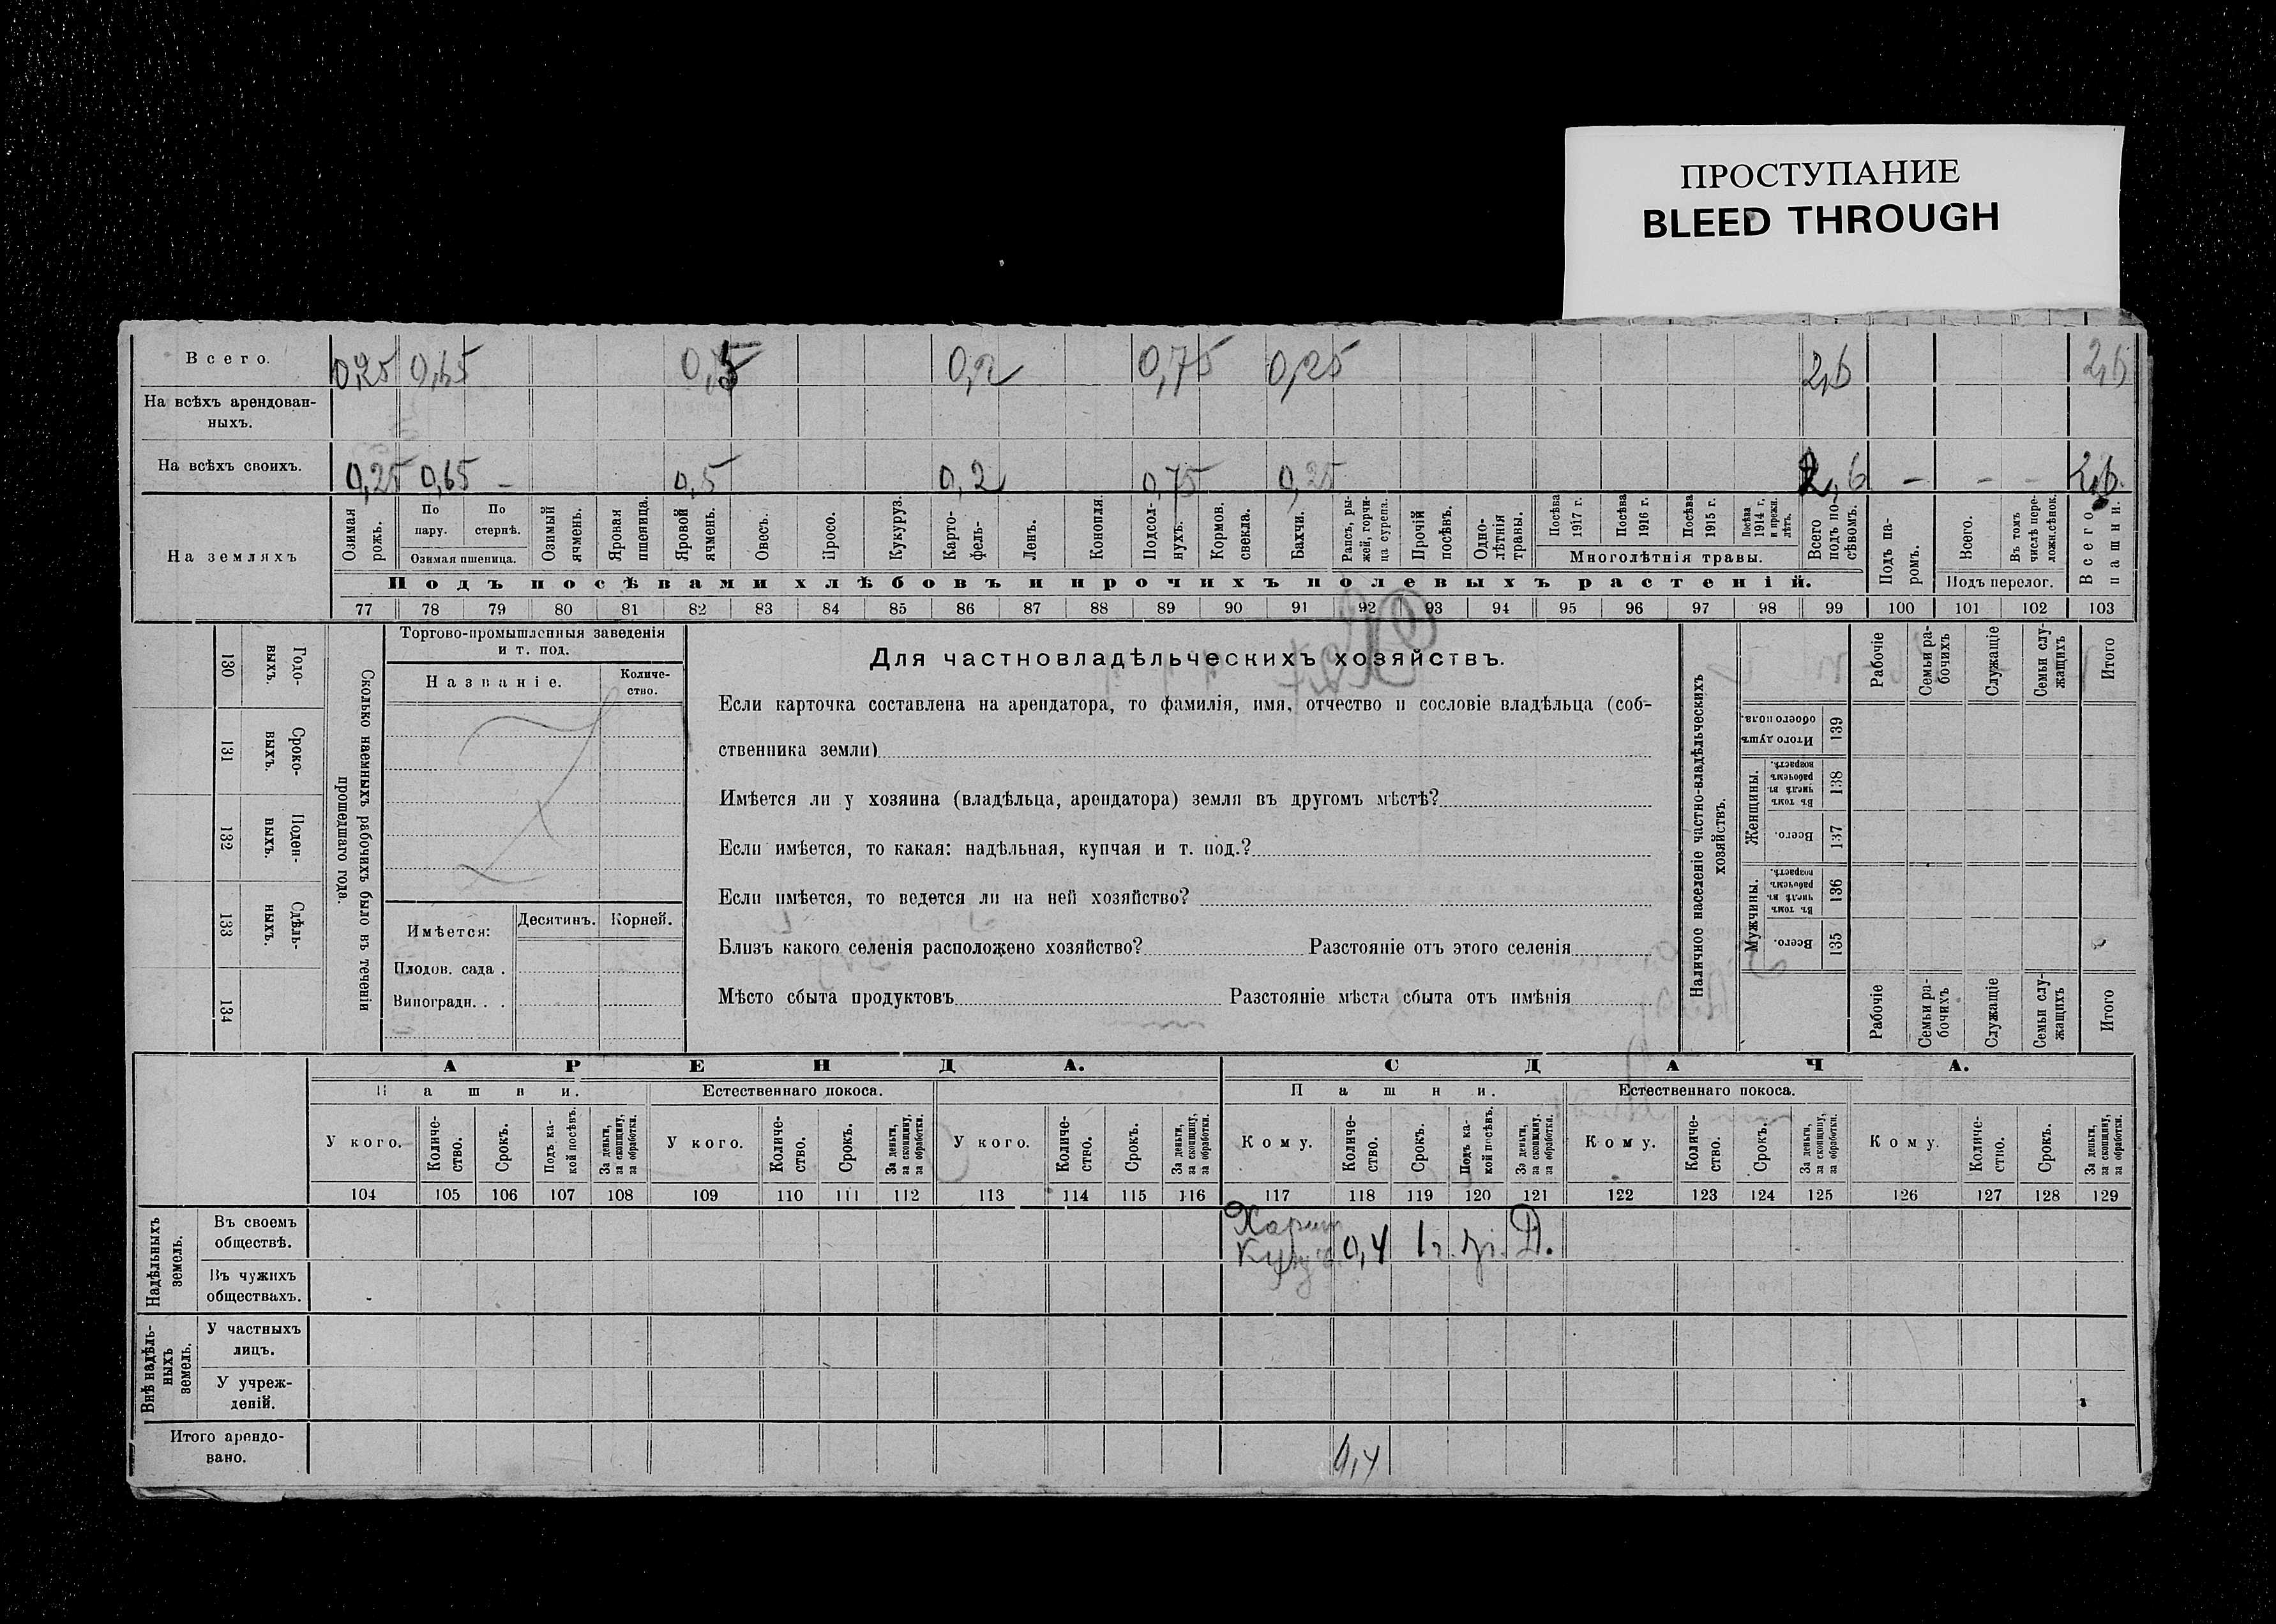 ПРОСТУПАНИЕ
BLEED THROUGH
Всего. 0,25 0,65 0,5 0,2 0,75 0,25 2,6 2,6
На всѣхъ арендован-
ныхъ.
На всѣхъ своихъ. 0,25 0,65 – 0,5 0,2 0,75 0,25 2,6 – – – 2,6
На земляхъ
Озимая рожь.
По пару.
По стернѣ.
Озимая пшеница.
Озимый ячмень.
Яровая пшеница.
Яровой ячмень.
Овесъ.
Просо.
Кукуруз.
Карто-
фель-
Ленъ.
Конопля.
Подсол-
нухъ.
Кормов. свекла.
Бахчи.
Рапсъ, ры-
жей, горчи-
ца сурепа.
Прочій посѣвъ.
Одно-
лѣтнія травы.
Посѣва 1917 г.
Посѣва 1916 г.
Посѣва 1915 г.
Посѣва 1914 г. и прежн. лѣтъ.
Многолѣтнія травы.
Всего подъ по-
сѣвомъ.
Подъ па-
ромъ.
Всего.
Въ томъ числѣ пере-
ложн.сѣнок.
Подъ перелог.
Всего пашни.
Подъ посѣвами хлѣбовъ и прочихъ полевыхъ растеній.
77 78 79 80 81 82 83 84 85 86 87 88 89 90 91 92 93 94 95 96 97 98 99 100 101 102 103
Сколько наемныхъ рабочихъ было въ теченіи
прошедшаго года.
Годо-
выхъ.
130
Сроко-
выхъ.
131
Поден-
ныхъ.
132
Сдѣль-
ныхъ.
133
134
Торгово-промышленныя заведенія
и т. под.
Названіе. Количе-
ство.
Имѣется: Десятинъ. Корней.
Плодов. сада .
Виноградн. . .
Для частновладѣльческихъ хозяйствъ.
Если карточка составлена на арендатора, то фамилія, имя, отчество и сословіе владѣльца (соб-
ственника земли)
Имѣется ли у хозяина (владѣльца, арендатора) земля въ другомъ мѣстѣ?
Если имѣется, то какая: надѣльная, купчая и т. под.?
Если имѣется, то ведется ли на ней хозяйство?
Близъ какого селенія расположено хозяйство? Разстояніе отъ этого селенія
Мѣсто сбыта продуктовъ Разстояніе мѣста сбыта отъ имѣнія
Наличное населеніе частно-владѣльческихъ
хозяйствъ.
Итого душъ обоего пола.
139
Женщины.
Въ томъ числѣ въ рабочемъ возрастѣ.
138
Всего.
137
Мужчины.
Въ томъ числѣ въ рабочемъ возрастѣ.
136
Всего.
135
Рабочіе
Семьи ра-
бочихъ
Служащіе
Семьи слу-
жащихъ
Итого
Рабочіе
Семьи ра-
бочихъ
Служащіе
Семьи слу-
жащихъ
Итого
АРЕНДА. СДАЧА.
Пашни. Естественнаго покоса. Пашни. Естественнаго покоса.
У кого. Количе-
ство. Срокъ. Подъ ка-
кой посѣвъ. За деньги,
за скопщину,
за обработки.
У кого. Количе-
ство. Срокъ. За деньги,
за скопщину,
за обработки.
У кого. Количе-
ство. Срокъ. За деньги,
за скопщину,
за обработки.
Кому. Количе-
ство. Срокъ. Подъ ка-
кой посѣвъ. За деньги,
за скопщину,
за обработки.
Кому. Количе-
ство. Срокъ. За деньги,
за скопщину,
за обработки.
Кому. Количе-
ство. Срокъ. За деньги,
за скопщину,
за обработки.
104 105 106 107 108 109 110 111 112 113 114 115 116 117 118 119 120 121 122 123 124 125 126 127 128 129
Надѣльныхъ
земель.
Въ своемъ
обществѣ. 0,4 1 г. Д.
Въ чужихъ
обществахъ.
Внѣ надѣль-
ныхъ
земель.
У частныхъ
лицъ.
У учреж-
деній.
Итого арендо-
вано. 0,4